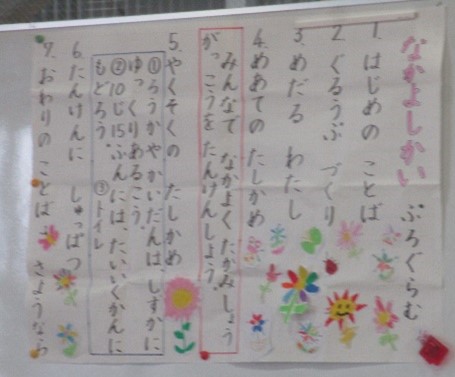 なかよしかい ぷろぐらむ
1. はじめの ことば
2. ぐるうぷ づくり
3. めだる わたし
4. めあての たしかめ
みんなで なかよく たのしく
がっこうを たんけんしよう。
5. やくそくの たしかめ
①ろうかやかいだんは、しずかに
ゆっくりあるこう。
②10じ15ふんには、たいいくかんに
もどろう。 ③トイレ
6. たんけんに しゅっぱつ
7. おわりの ことば さようなら